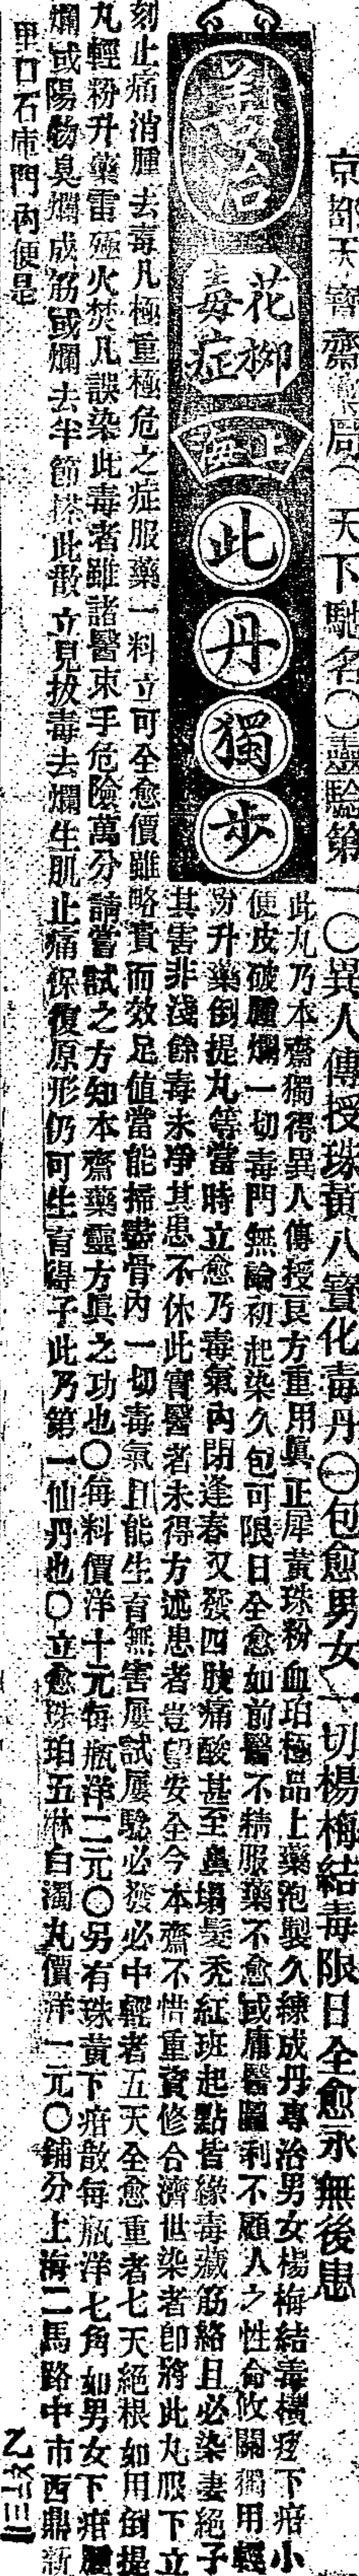 京都天寶齋藥局○天下馳名○靈驗第一○異人傳授珠黃八寶化毒丹㊀包愈男女一切楊梅結毒限日全愈永無後患
善治
花柳毒症
上海
此丹獨步
此丸乃本齋獨得異人傳授良方重用眞正犀黃珠粉血珀極品上藥泡製久練成丹專治男女楊梅結毒橫痃下疳小
便皮破腫爛一切毒門無論初起染久包可限日全愈如前醫不精服藥不愈或庸醫圖利不顧人之性命攸關獨用輕
粉升藥倒提丸等當時立愈乃毒氣內閉逢春又發四肢痛酸甚至鼻塌髮禿紅班起點皆緣毒藏筋絡且必染妻絕子
其害非淺餘毒未凈其患不休此實醫者未得方遞患者豈望安全今本齋不惜重資修合濟世染者卽將此丸服下立
刻止痛消腫去毒凡極重極危之症服藥一料立可全愈價雖略貴而效足值當能掃盡骨內一切毒氣且能生育無害屢試屢騐必發必中輕者五天全愈重者七天絕根如用倒提
丸輕粉升藥雷殛火焚凡誤染此毒者雖諸醫束手危險萬分請嘗試之方知本齋藥靈方眞之功也○每料價洋十元每瓶洋二元○另有珠黃下疳散每瓶洋七角如男女下疳腫
爛或陽物臭爛成筋或爛去半節搽此散立見拔毒去爛生肌止痛保復原形仍可生育得子此乃第一仙丹也○立愈珠珀五淋白濁丸價洋一元○鋪分上海二馬路中市西鼎新
里口石庫門內便是